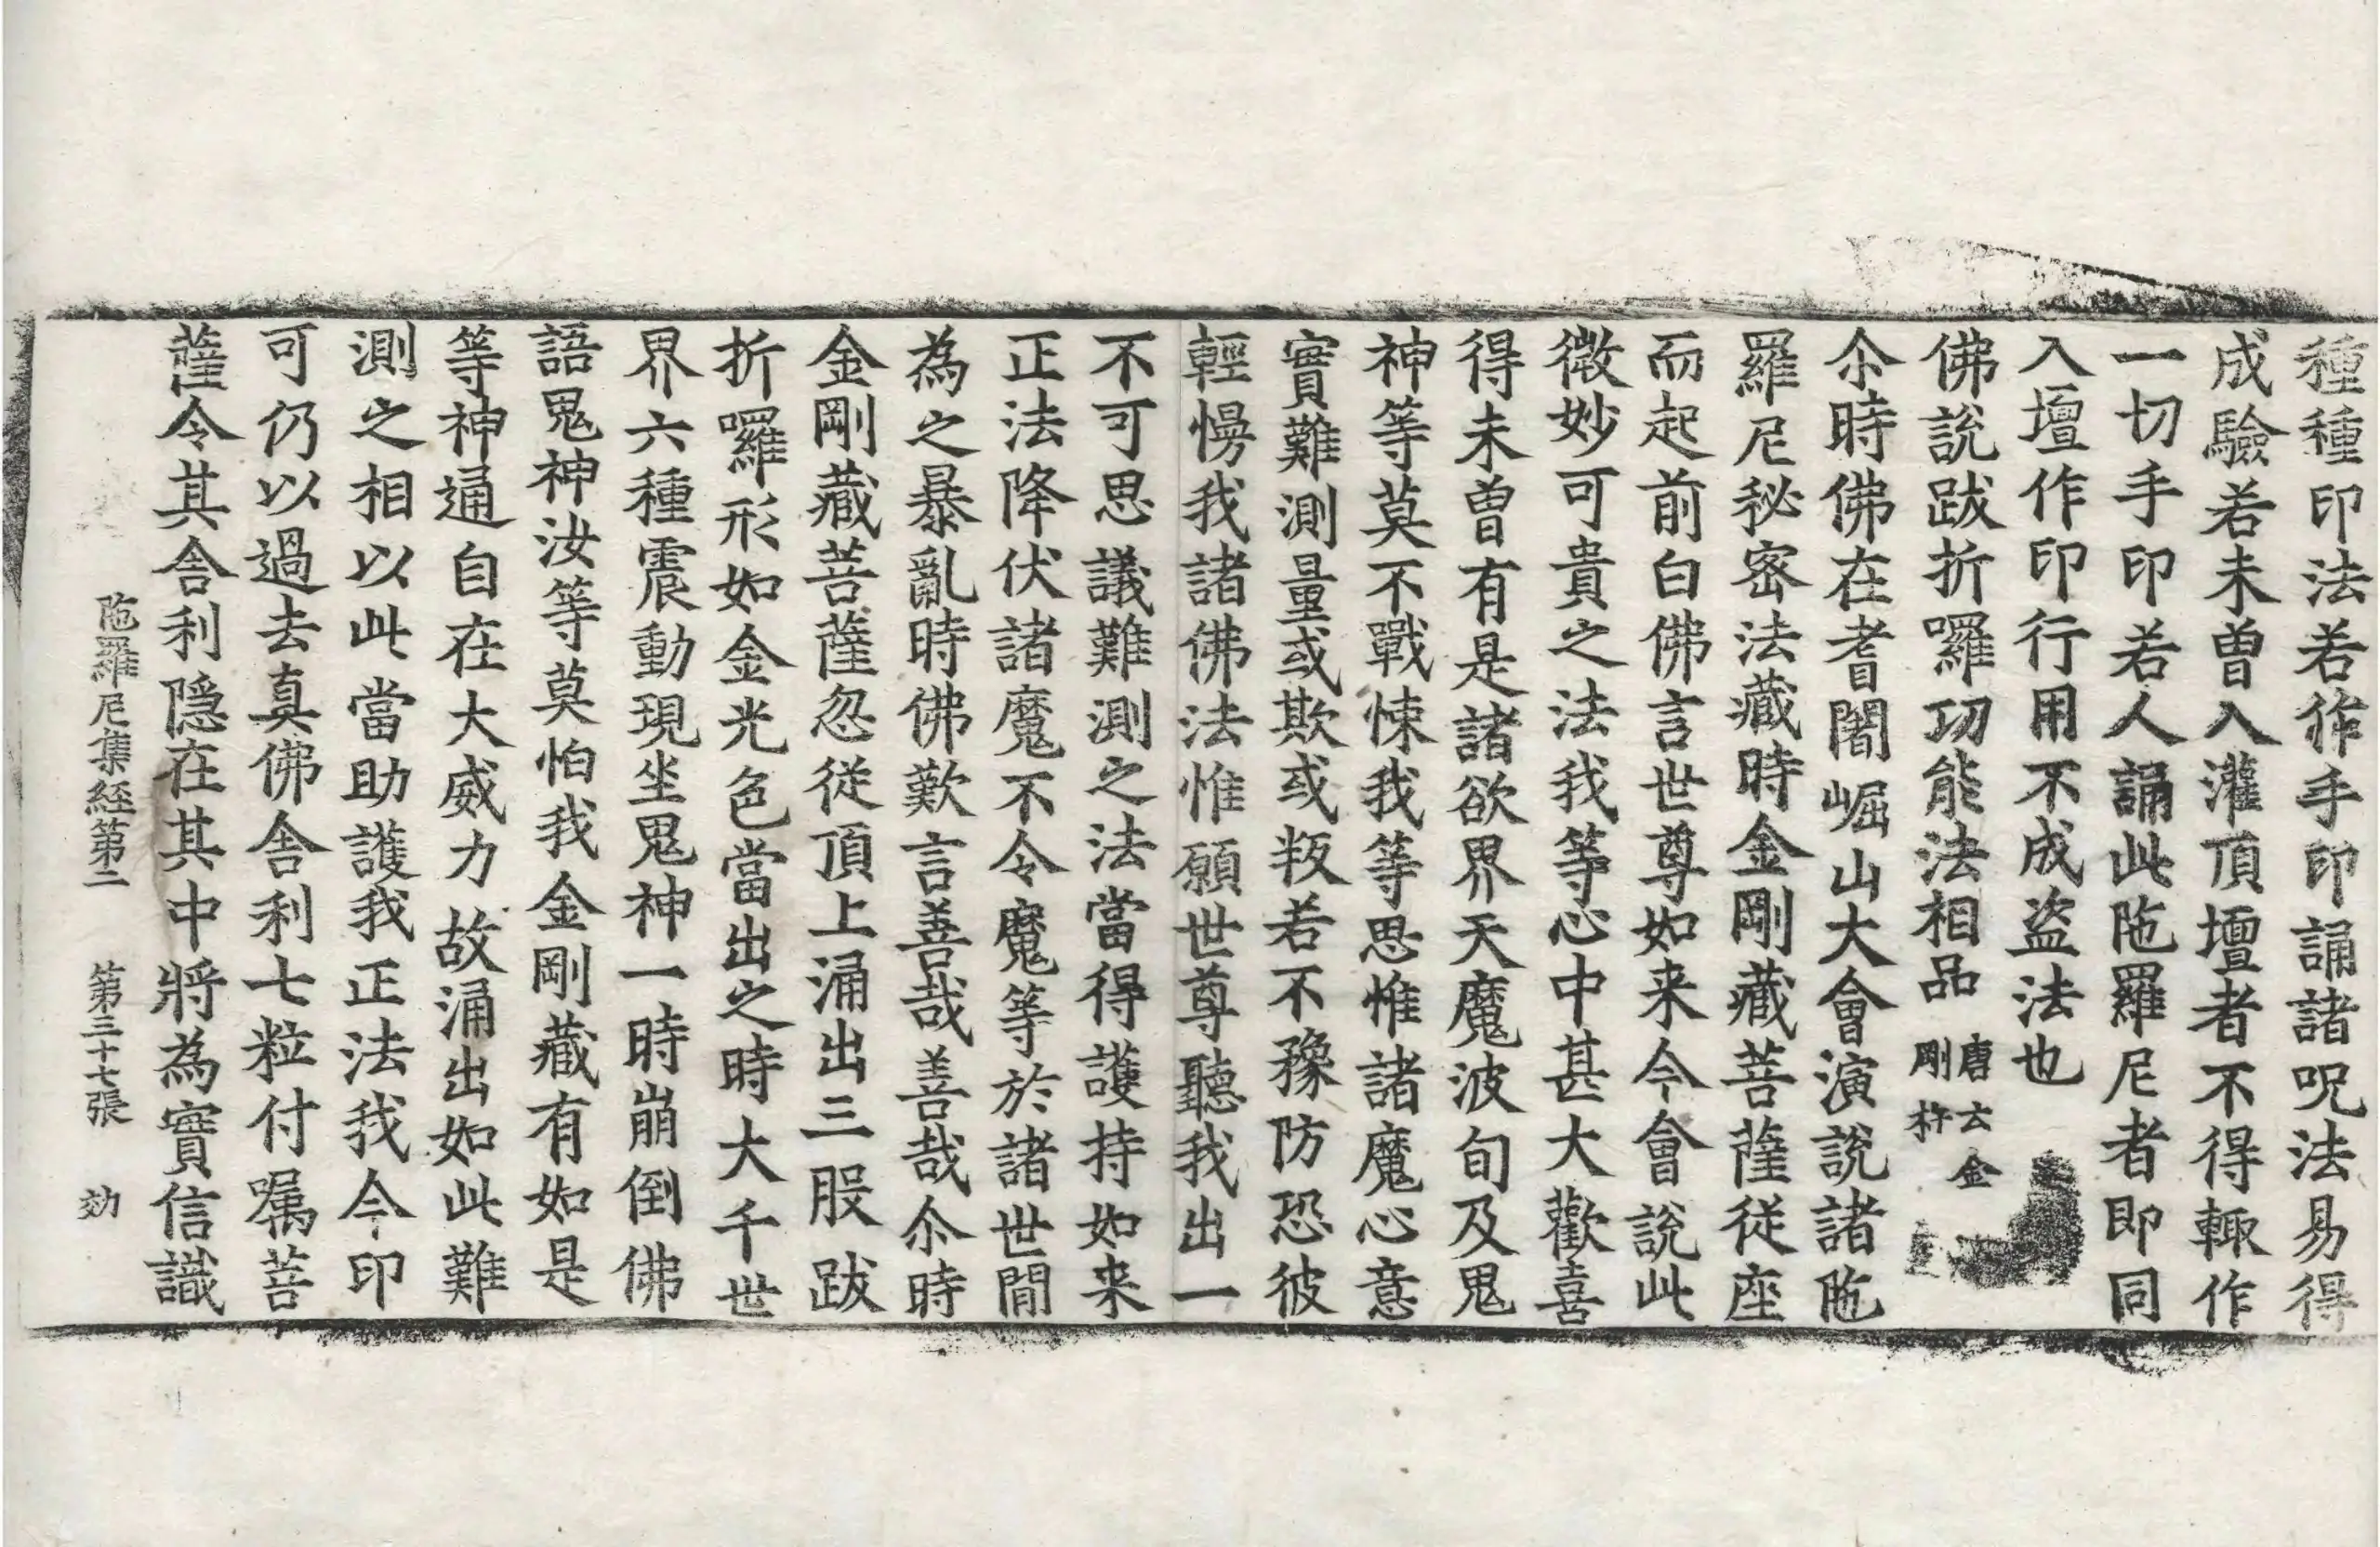 種種印法若作手印誦諸呪法易得
成驗若未曾入灌頂壇者不得輙作
一切手印若人誦此陁羅尼者即同
入壇作印行用不成盗法也
佛說跋折囉功能法相品 唐云金剛杵
尒時佛在耆闍崛山大會演說諸陁
羅尼秘密法藏時金剛藏菩薩從座
而起前白佛言世尊如来今會說此
微妙可貴之法我等心中甚大歡喜
得未曾有是諸欲界天魔波旬及鬼
神等莫不戰悚我等思惟諸魔心意
實難測量或欺或叛若不豫防恐彼
輕慢我諸佛法惟願世尊聽我出一
不可思議難測之法當得護持如来
正法降伏諸魔不令魔等於諸世間
為之暴亂時佛歎言善哉善哉尒時
金剛藏菩薩忽従頂上涌出三股跋
折囉形如金光色當出之時大千世
界六種震動現坐鬼神一時崩倒佛
語鬼神汝等莫怕我金剛藏有如是
等神通自在大威力故涌出如此難
測之相以此當助護我正法我今印
可仍以過去真佛舎利七粒付嘱菩
薩令其舎利隱在其中將為實信識
陁羅尼集經第二 第三十七張 効